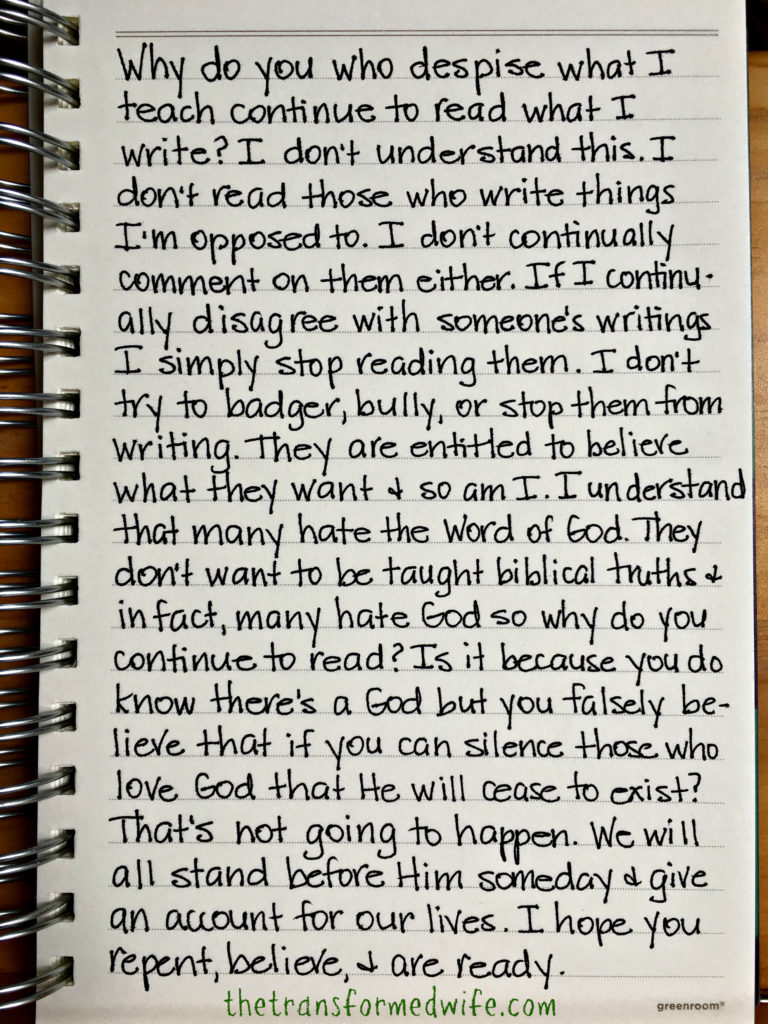 Why do you who despise what I
teach continue to read what I
write? I don't understand this. I
don't read those who write things
I'm opposed to. I don't continually
comment on them either. If I continu-
ally disagree with someone's writings
I simply stop reading them. I don't
try to badger, bully, or stop them from
writing. They are entitled to believe
what they want & so am I. I understand
that many hate the Word of God. They
don't want to be taught biblical truths &
in fact, many hate God so why do you
continue to read? Is it because you do
know there's a God but you falsely be-
lieve that if you can silence those who
love God that He will cease to exist?
That's not going to happen. We will
all stand before Him someday & give
an account for our lives. I hope you
repent, believe, & are ready.
thetransformedwife.com
greenroom®